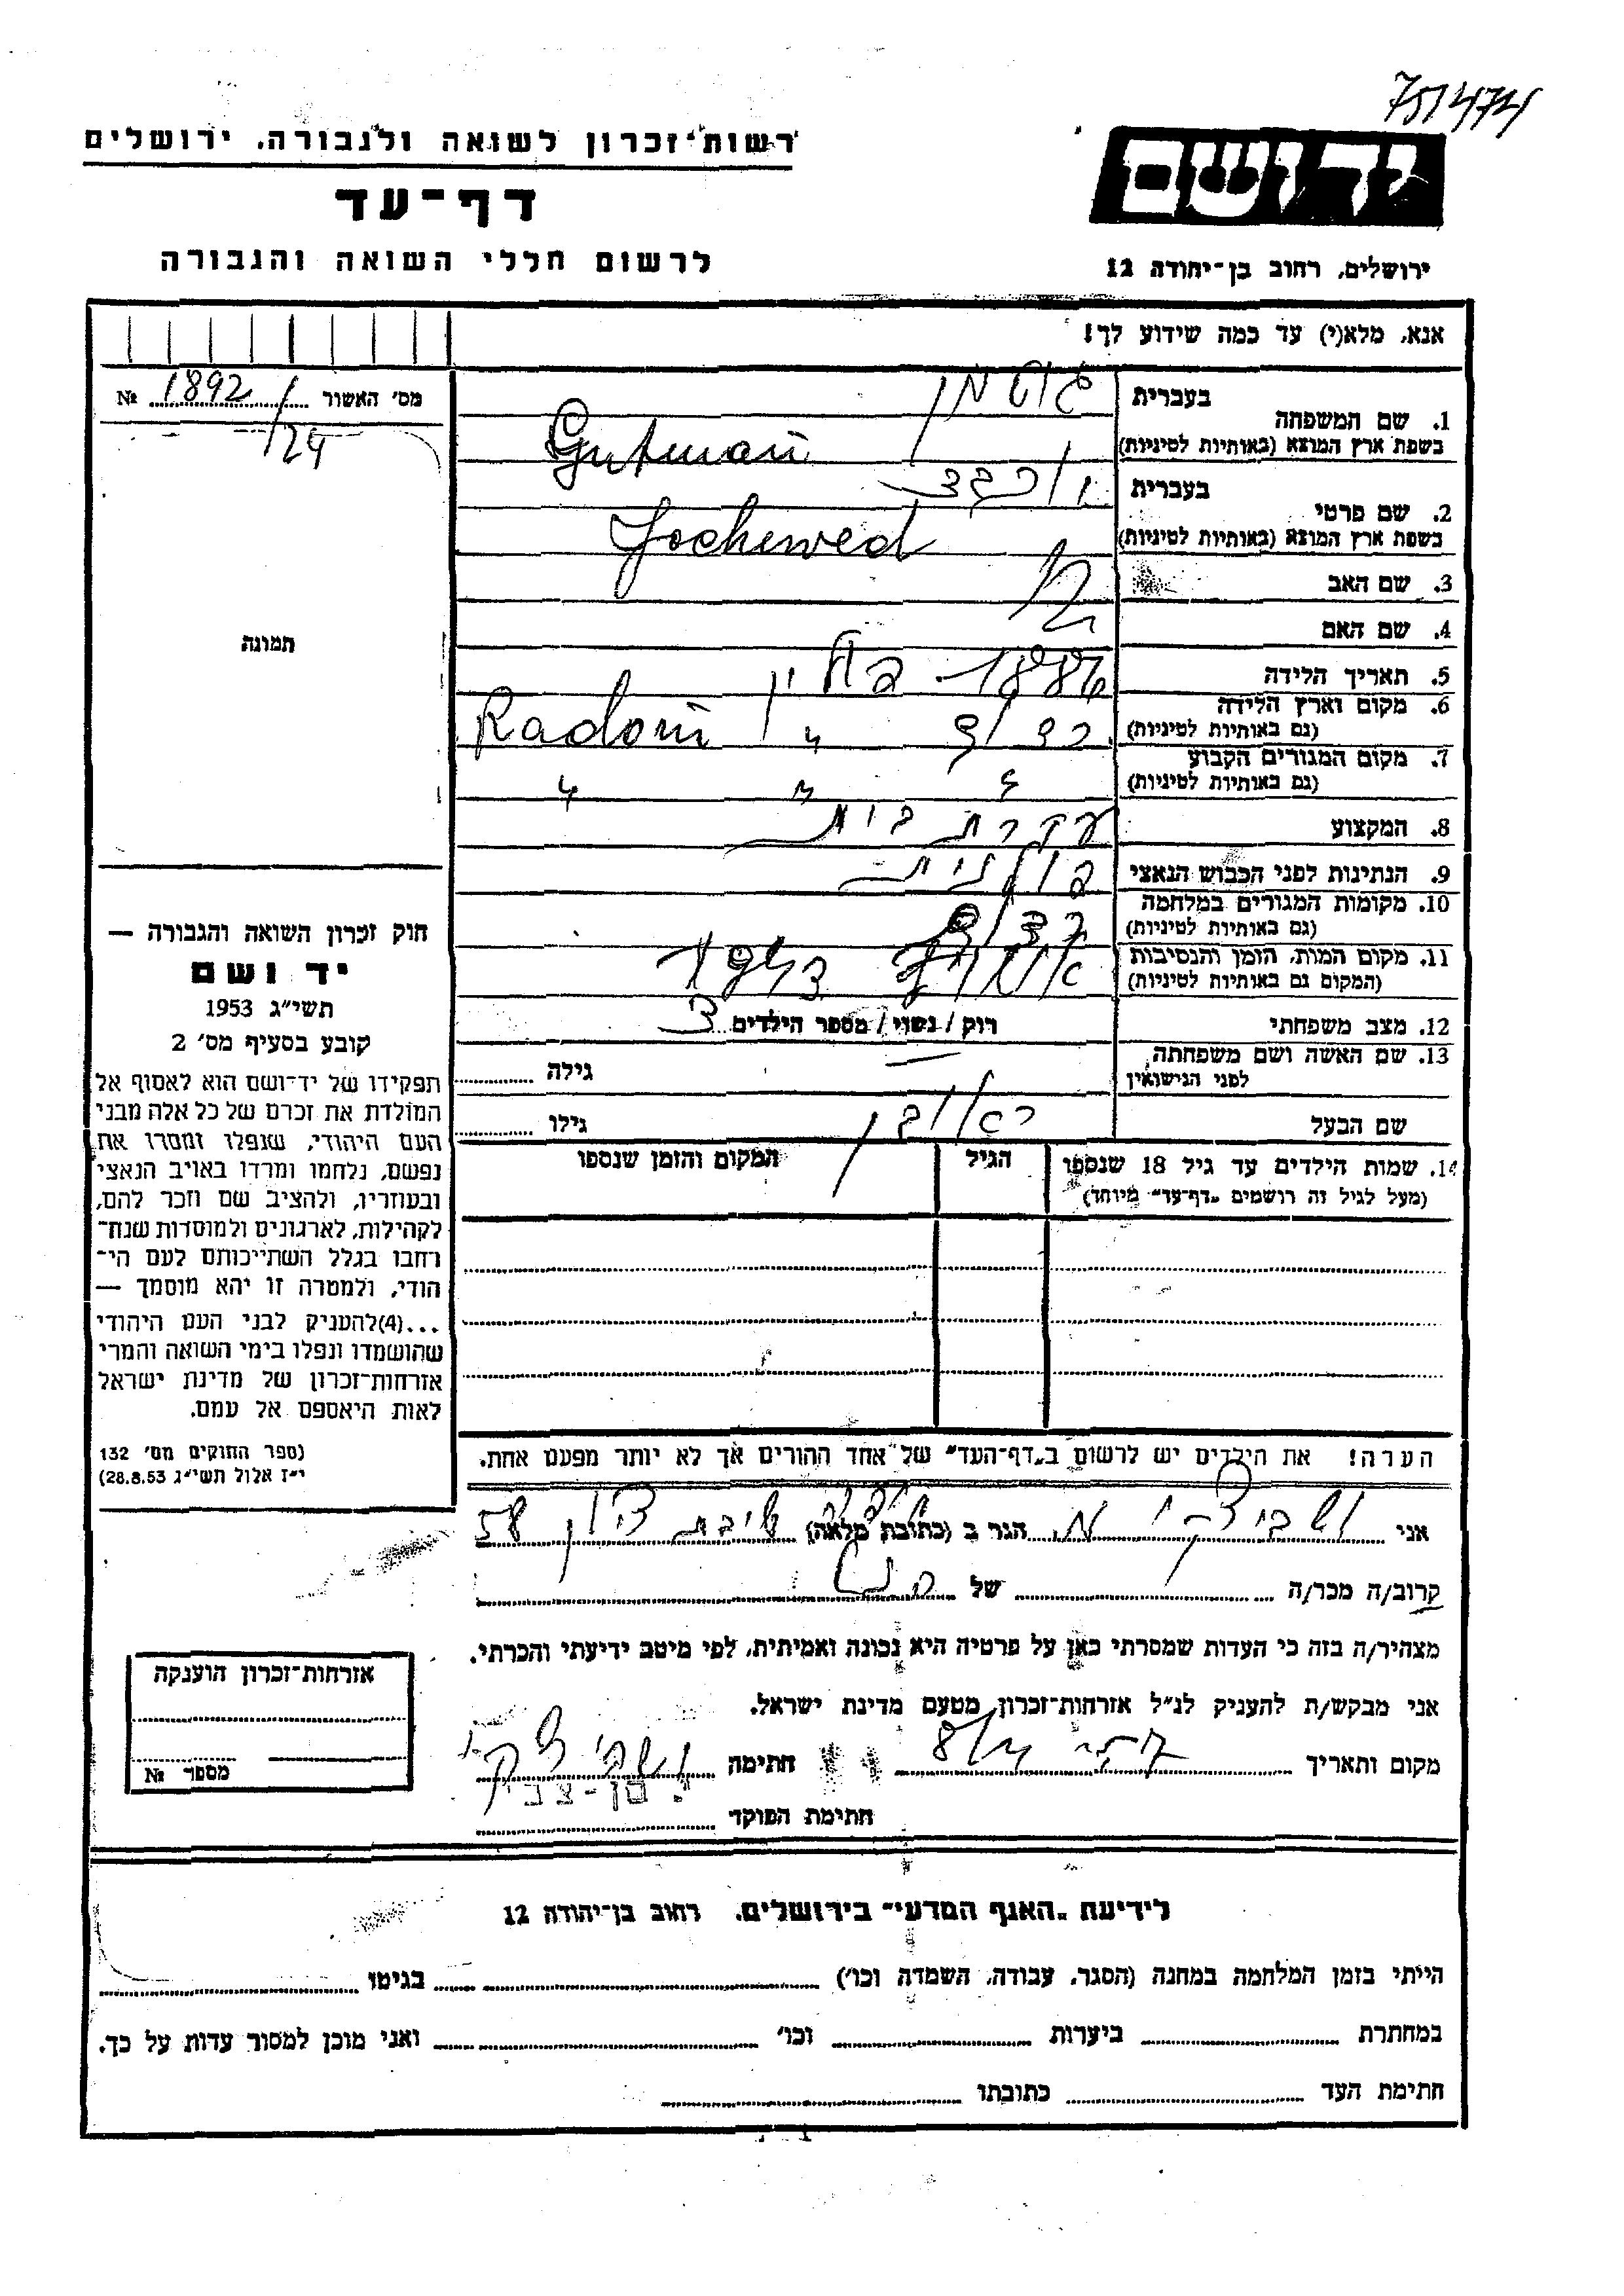 רשות־זכרון לשואה ולגבורה, ירושלים
דף־עד
לרשום חללי השואה והגבורה
יד ושם
ירושלים, רחוב בן־יהודה 12
אנא, מלא(י) עד כמה שידוע לך!
מס׳ האשור 1892 №
/24
תמונה
בעברית גוטמן
1. שם המשפחה
בשפת ארץ המוצא (באותיות לטיניות) Gutman
בעברית יוכבד
2. שם פרטי
בשפת ארץ המוצא (באותיות לטיניות) Jochewed
3. שם האב
4. שם האם
5. תאריך הלידה 1886
6. מקום וארץ הלידה
(גם באותיות לטיניות) Radom
7. מקום המגורים הקבוע
(גם באותיות לטיניות) " " "
8. המקצוע עקרת בית
9. הנתינות לפני הכבוש הנאצי פולנית
10. מקומות המגורים במלחמה
(גם באותיות לטיניות)
11. מקום המות, הזמן והנסיבות
(המקום גם באותיות לטיניות)
12. מצב משפחתי רוק / נשוי / מספר הילדים
13. שם האשה ושם משפחתה
לפני הנישואין — גילה
שם הבעל ראובן גילו
14. שמות הילדים עד גיל 18 שנספו
(מעל לגיל זה רושמים "דף־עד" מיוחד)
הגיל
המקום והזמן שנספו
חוק זכרון השואה והגבורה —
יד ושם
תשי״ג 1953
קובע בסעיף מס׳ 2
תפקידו של יד־ושם הוא לאסוף אל
המולדת את זכרם של כל אלה מבני
העם היהודי, שנפלו ומסרו את
נפשם, נלחמו ומרדו באויב הנאצי
ובעוזריו, ולהציב שם וזכר להם,
לקהילות, לארגונים ולמוסדות שנח־
רחבו בגלל השתייכותם לעם הי־
הודי, ולמטרה זו יהא מוסמך —
...(4)להעניק לבני העם היהודי
שהושמדו ונפלו בימי השואה והמרי
אזרחות־זכרון של מדינת ישראל
לאות היאספם אל עמם.
(ספר החוקים מס׳ 132
י״ז אלול תשי״ג 28.8.53)
הערה! את הילדים יש לרשום ב"דף־העד" של אחד ההורים אך לא יותר מפעם אחת.
אני הגר ב (כתובת מלאה) שיבת ציון 58
קרוב/ה מכר/ה של
מצהיר/ה בזה כי העדות שמסרתי כאן על פרטיה היא נכונה ואמיתית, לפי מיטב ידיעתי והכרתי.
אני מבקש/ת להעניק לנ״ל אזרחות־זכרון מטעם מדינת ישראל.
מקום ותאריך חתימה
חתימת הפוקד
אזרחות־זכרון הוענקה
מספר №
לידיעת "האגף המדעי" בירושלים, רחוב בן־יהודה 12
הייתי בזמן המלחמה במחנה (הסגר, עבודה, השמדה וכו׳) בגיטו
במחתרת ביערות וכו׳ ואני מוכן למסור עדות על כך.
חתימת העד כתובתו